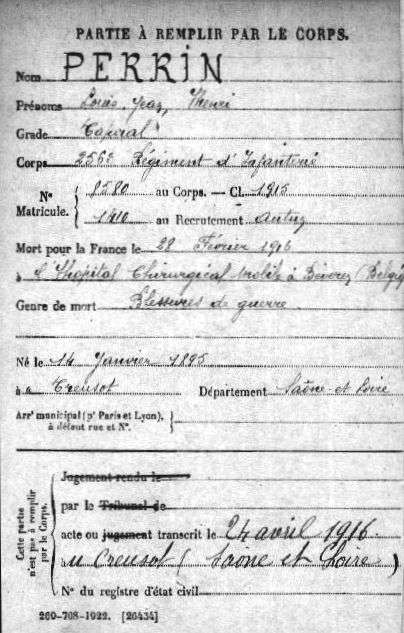 PARTIE À REMPLIR PAR LE CORPS.
Nom PERRIN
Prénoms Louis Jean, Henri
Grade Caporal
Corps 256e Régiment d'Infanterie
N° Matricule. { 8580 au Corps. — Cl. 1915
1410 au Recrutement Autun
Mort pour la France le 28 Février 1916
à l'Hôpital Chirurgical Mobile à Beveren (Belgiq
Genre de mort Blessures de guerre
Né le 14 Janvier 1895
à u Creusot Département Saône et Loire
Arrt municipal (pr Paris et Lyon), à défaut rue et N°. }
Cette partie n'est pas à remplir par le Corps.
Jugement rendu le
par le Tribunal de
acte ou jugement transcrit le 24 avril 1916
au Creusot (Saône et Loire)
N° du registre d'état civil
260-708-1922. [26434]